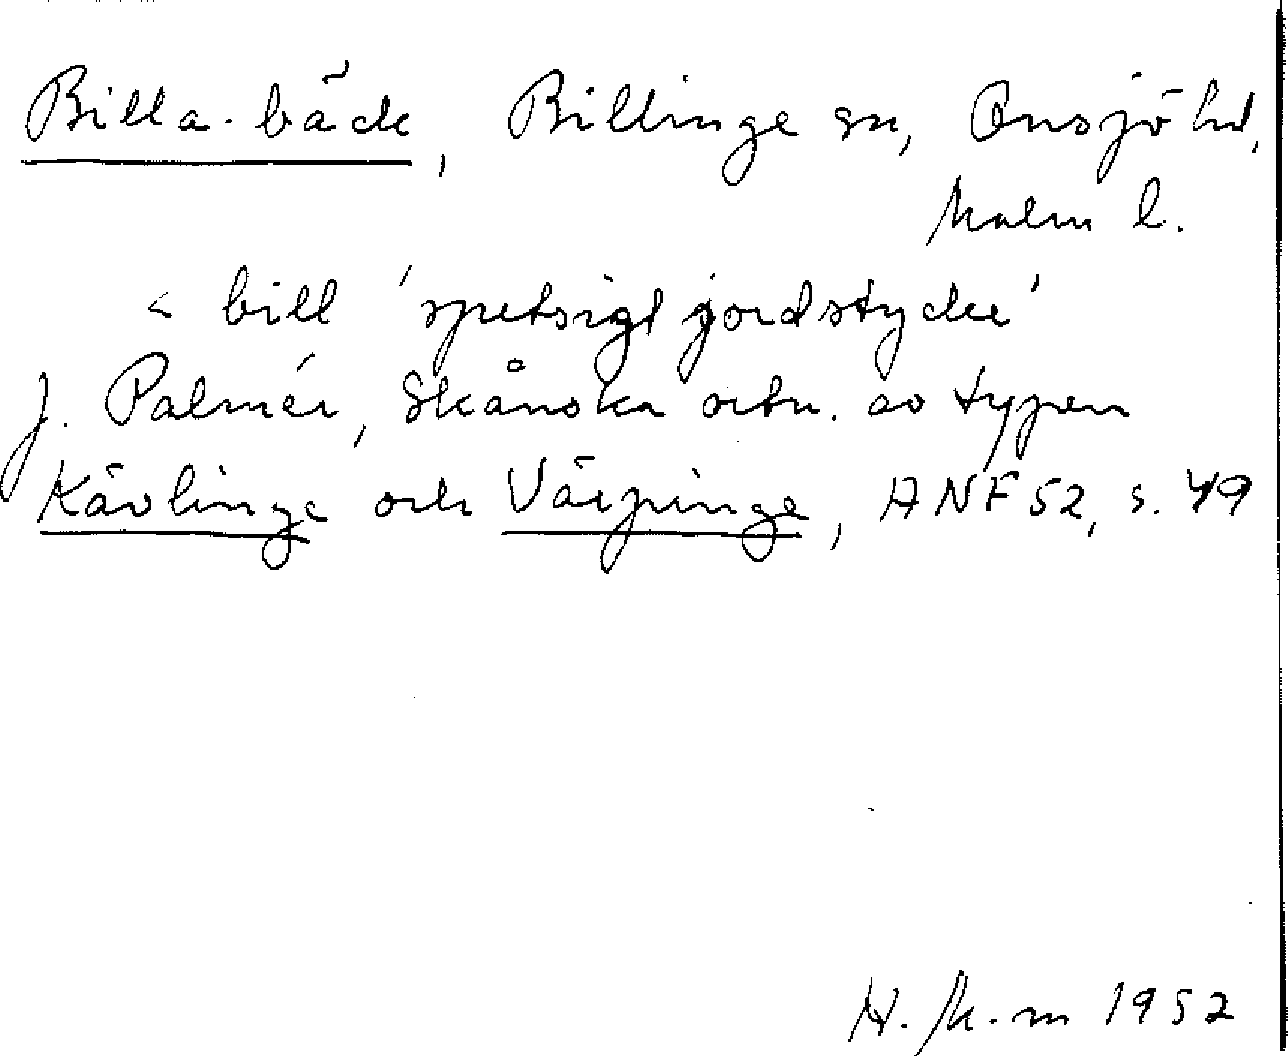 Billa-bäck, Billinge sn, Onsjö hd,
Malm l.
< bill 'spetsigt jordstycke'
J. Palmér, Skånska ortn. av typen
Kävlinge och Värpinge, ANF 52, s. 49
H. M-m 1952